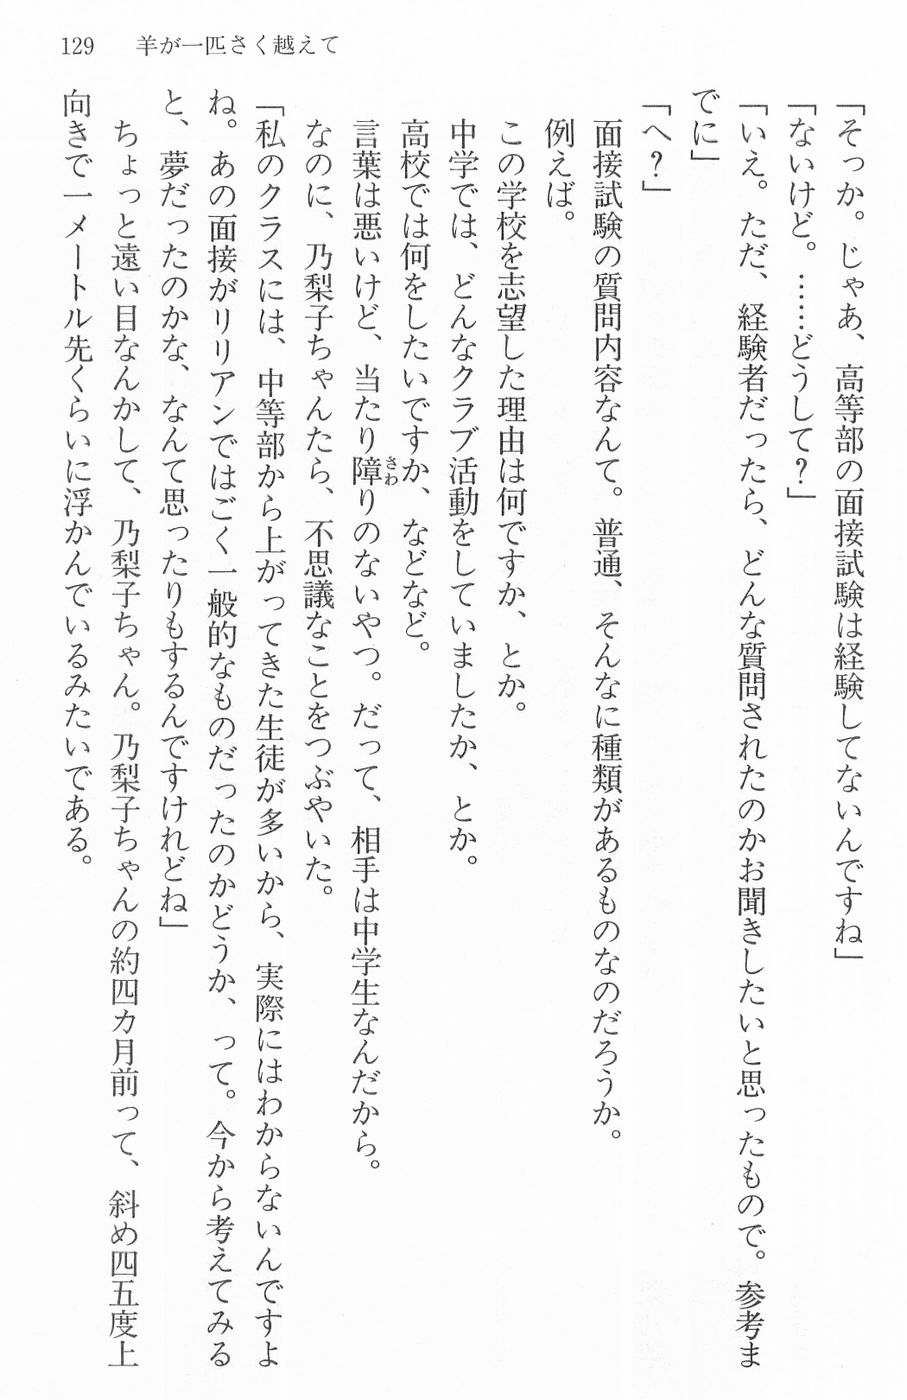 129 羊が一匹さく越えて
「そっか。じゃあ、高等部の面接試験は経験してないんですね」
「ないけど。……どうして？」
「いえ。ただ、経験者だったら、どんな質問されたのかお聞きしたいと思ったもので。参考ま
でに」
「へ？」
面接試験の質問内容なんて。普通、そんなに種類があるものなのだろうか。
例えば。
この学校を志望した理由は何ですか、とか。
中学では、どんなクラブ活動をしていましたか、とか。
高校では何をしたいですか、などなど。
言葉は悪いけど、当たり障さわりのないやつ。だって、相手は中学生なんだから。
なのに、乃梨子ちゃんたら、不思議なことをつぶやいた。
「私のクラスには、中等部から上がってきた生徒が多いから、実際にはわからないんですよ
ね。あの面接がリリアンではごく一般的なものだったのかどうか、って。今から考えてみる
と、夢だったのかな、なんて思ったりもするんですけれどね」
ちょっと遠い目なんかして、乃梨子ちゃん。乃梨子ちゃんの約四カ月前って、斜め四五度上
向きで一メートル先くらいに浮かんでいるみたいである。